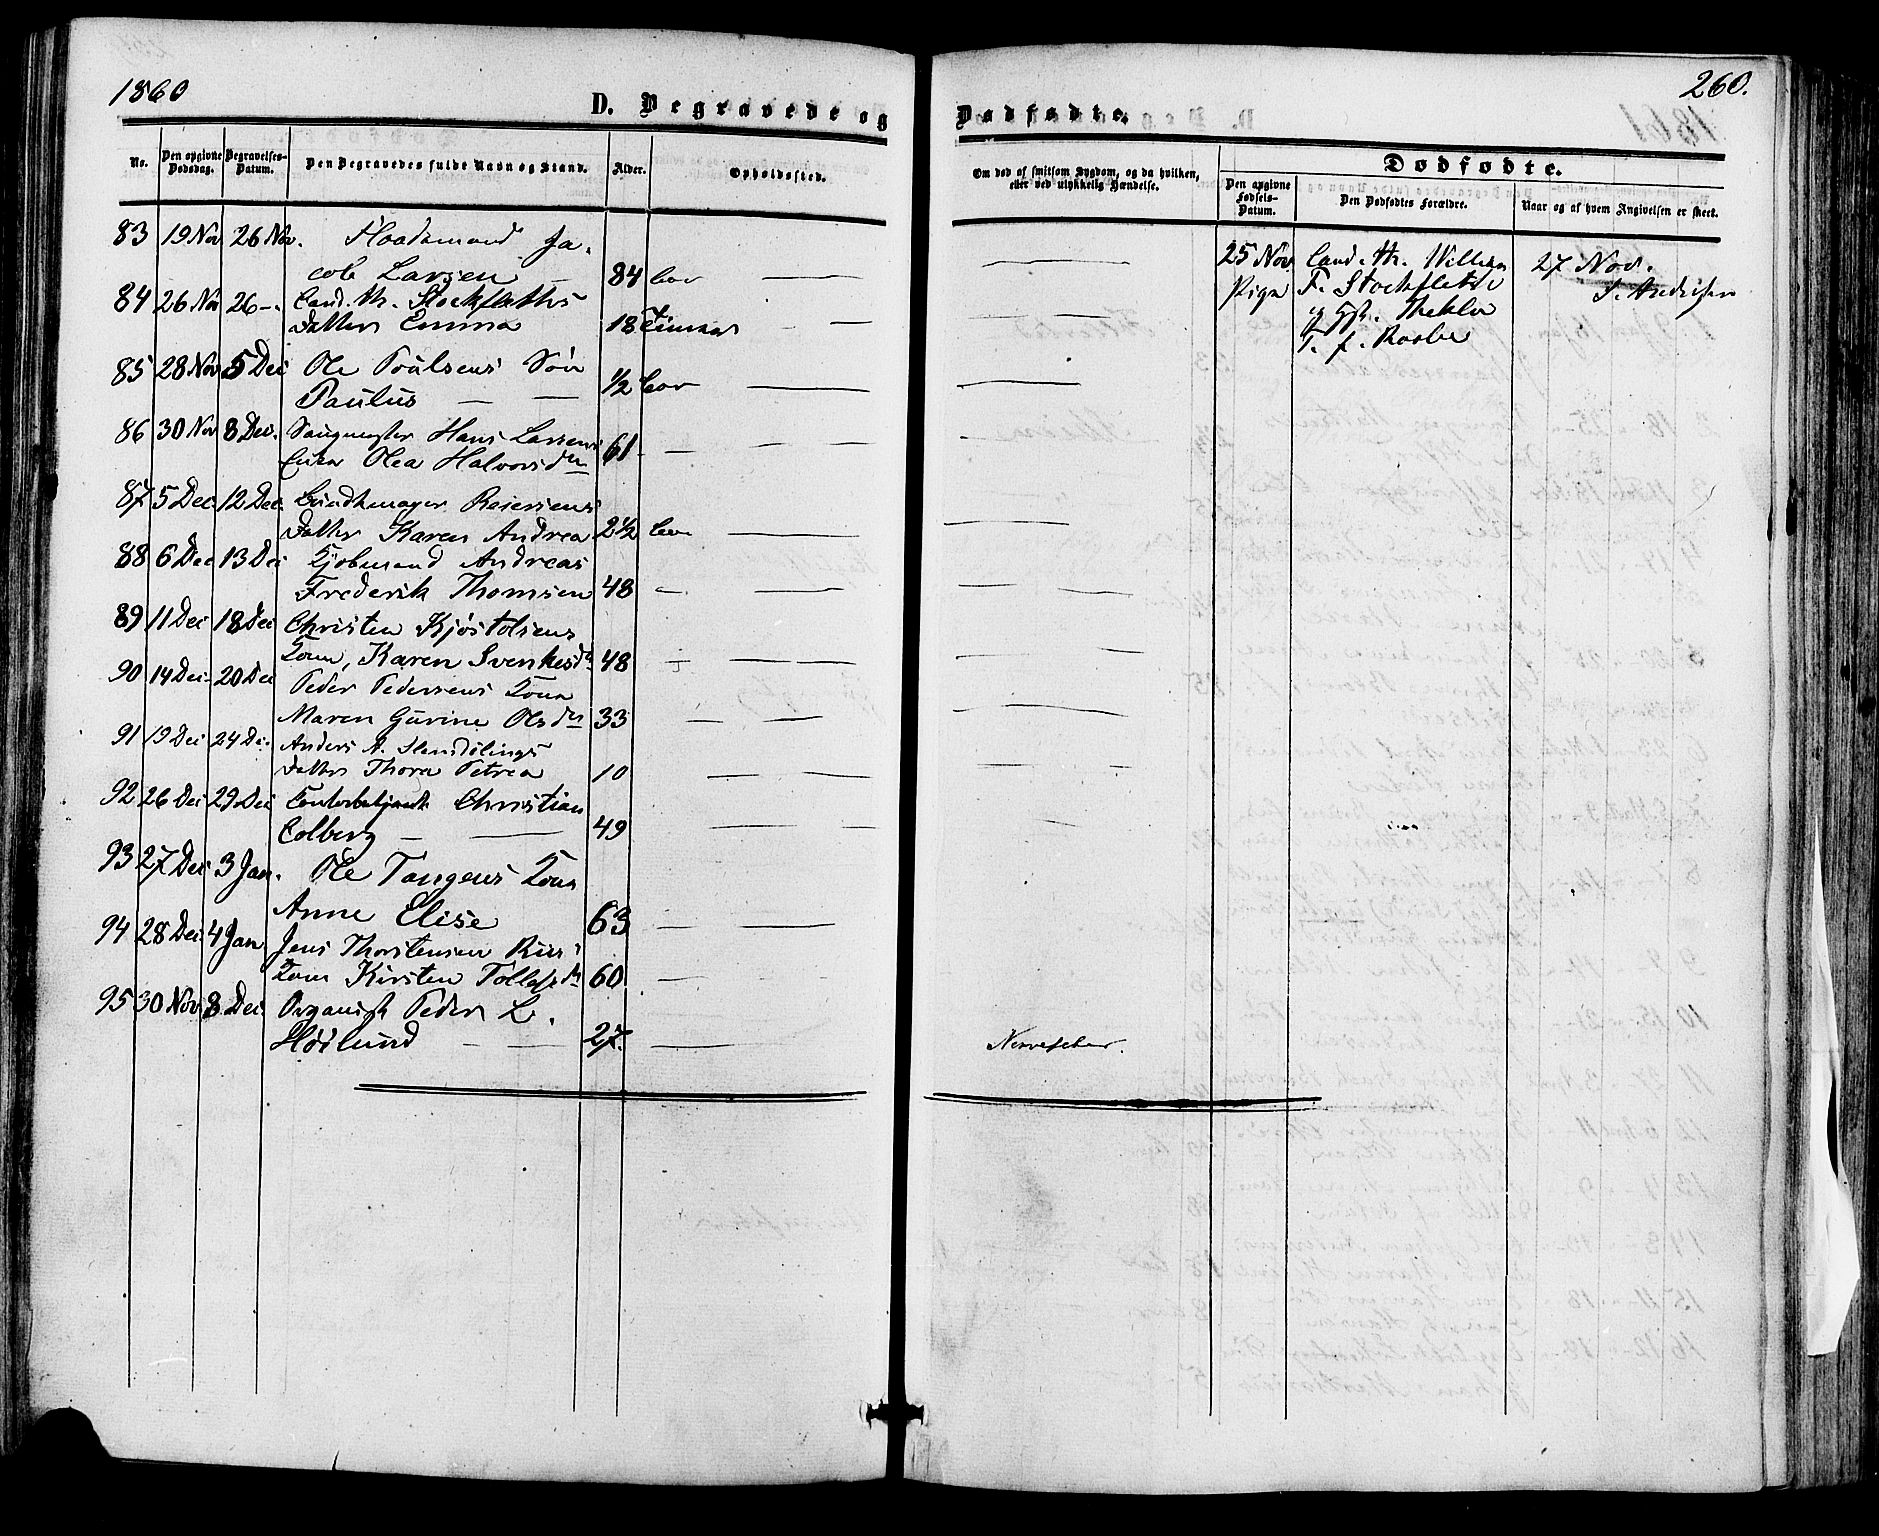 1860
D. Begravede og
No.
Den opgivne Dødsdag.
Begravelses-Datum.
Den Begravedes fulde Navn og Stand.
Alder.
Opholdssted.
83 19 Nov 26 Nov. Ja-
cob Larsen — 84
84 26 Nov 26 —. Cand. th. Stockfleths
Datter Emma 18 Timer
85 28 Nov 5 Dec Ole Poulsens Søn
Paulus — — 1/2
86 30 Nov 8 Dec. Hans Larsens
Enke Olea Halvorsdtr 61 —
87 5 Dec. 12 Dec. Reiersens
Datter Karen Andrea 2 1/2
88 6 Dec 13 Dec Kjøbmand Andreas
Frederik Thomsen 48 —
89 11 Dec 18 Dec Christen Kjøstolsens
Kone, Karen Svenkesdtr 48
90 14 Dec. 20 Dec Peder Pedersens Kone
Maren Gurine Olsdtr 33
91 19 Dec 24 Dec. Anders A.
Datter Thora Petrea 10
92 26 Dec 29 Dec Contorbetjent Christian
Colberg — — 49
93 27 Dec 3 Jan. Ole Tangens Kone
Anne Elise 63
94 28 Dec 4 Jan Jens Thorstensen
Kone Kirsten 60
95 30 Nov 8 Dec. Organist Peder L.
Høilund — — 27.
260.
Dødfødte.
Om død af smitsom Sygdom, og da hvilken,
eller ved ulykkelig Hændelse.
Dødfødte.
Den opgivne Fødsels-Datum.
Den Dødfødtes Forældre.
Naar og af hvem Angivelsen er skeet.
25 Nov Cand. th. Wilhelm 27 Nov.
Pige F. Stockfleth
og Thekla
T. f.
Nervefeber.